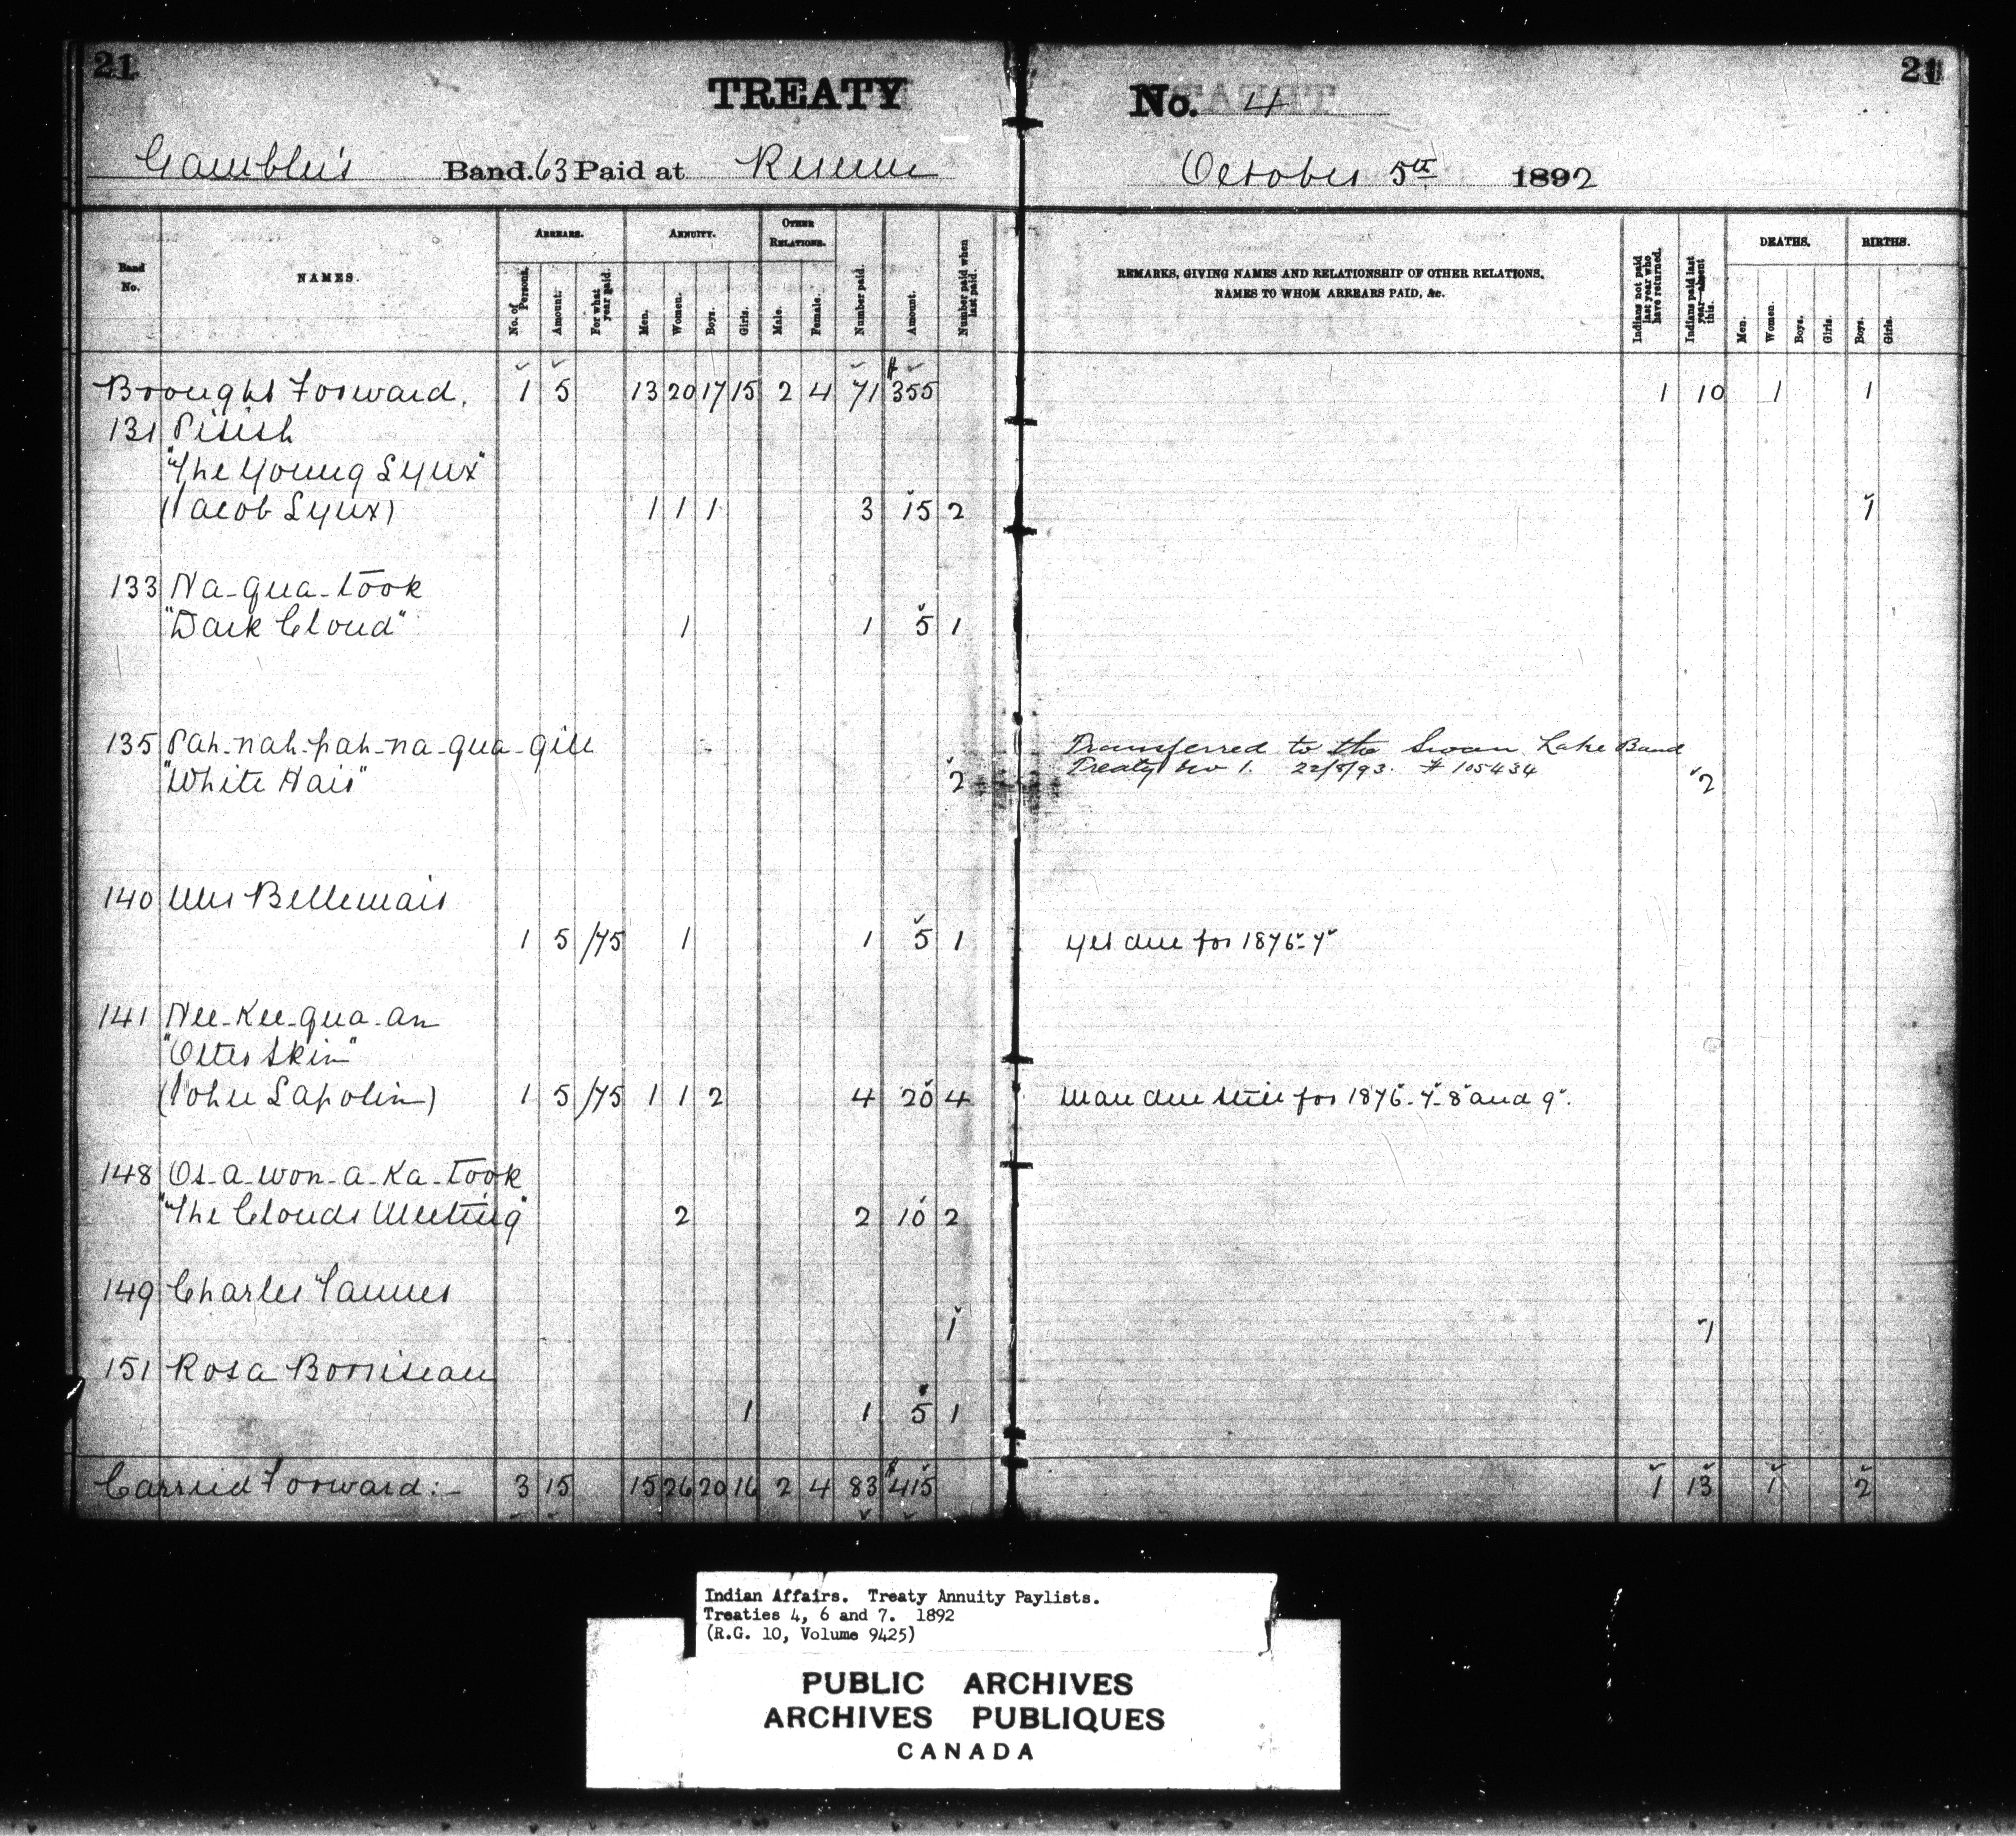 21
TREATY
No. 4
21
Gambler's Band. 63 Paid at Reserve
October 5th 1892
Band No.
NAMES.
ARREARS.
No. of Persons.
Amount.
For what year paid.
ANNUITY.
Men.
Women.
Boys.
Girls.
OTHER RELATIONS.
Male.
Female.
Number paid.
Amount.
Number paid when last paid.
REMARKS, GIVING NAMES AND RELATIONSHIP OF OTHER RELATIONS,
NAMES TO WHOM ARREARS PAID, &c.
Indians not paid last year who have returned.
Indians paid last year—absent this.
DEATHS.
Men.
Women.
Boys.
Girls.
BIRTHS.
Boys.
Girls.
Brought Forward. 1 5 13 20 17 15 2 4 71 $355 1 10 1 1
131 Pisish
"The Young Lynx"
(Jacob Lynx) 1 1 1 3 15 2 1
133 Na-qua-took
"Dark Cloud" 1 1 5 1
135 Pah-nah-pah-na-qua-gill Transferred to the Swan Lake Band
"White Hair" 2 Treaty No 1. 22/8/93. # 105434 2
140 Mrs Bellemair
1 5 /75 1 1 5 1 yet due for 1876-7
141 Nee-Kee-qua-an
"Otter Skin"
(John Lapolin) 1 5 /75 1 1 2 4 20 4 Man due still for 1876-7-8 and 9.
148 Os-a-won-a-Ka-took
"The Clouds Meeting" 2 2 10 2
149 Charles Tanner
1 1
151 Rosa Borriseau
1 1 5 1
Carried Forward:- 3 15 15 26 20 16 2 4 83 $415 1 13 1 2
Indian Affairs. Treaty Annuity Paylists.
Treaties 4, 6 and 7. 1892
(R.G. 10, Volume 9425)
PUBLIC ARCHIVES
ARCHIVES PUBLIQUES
CANADA